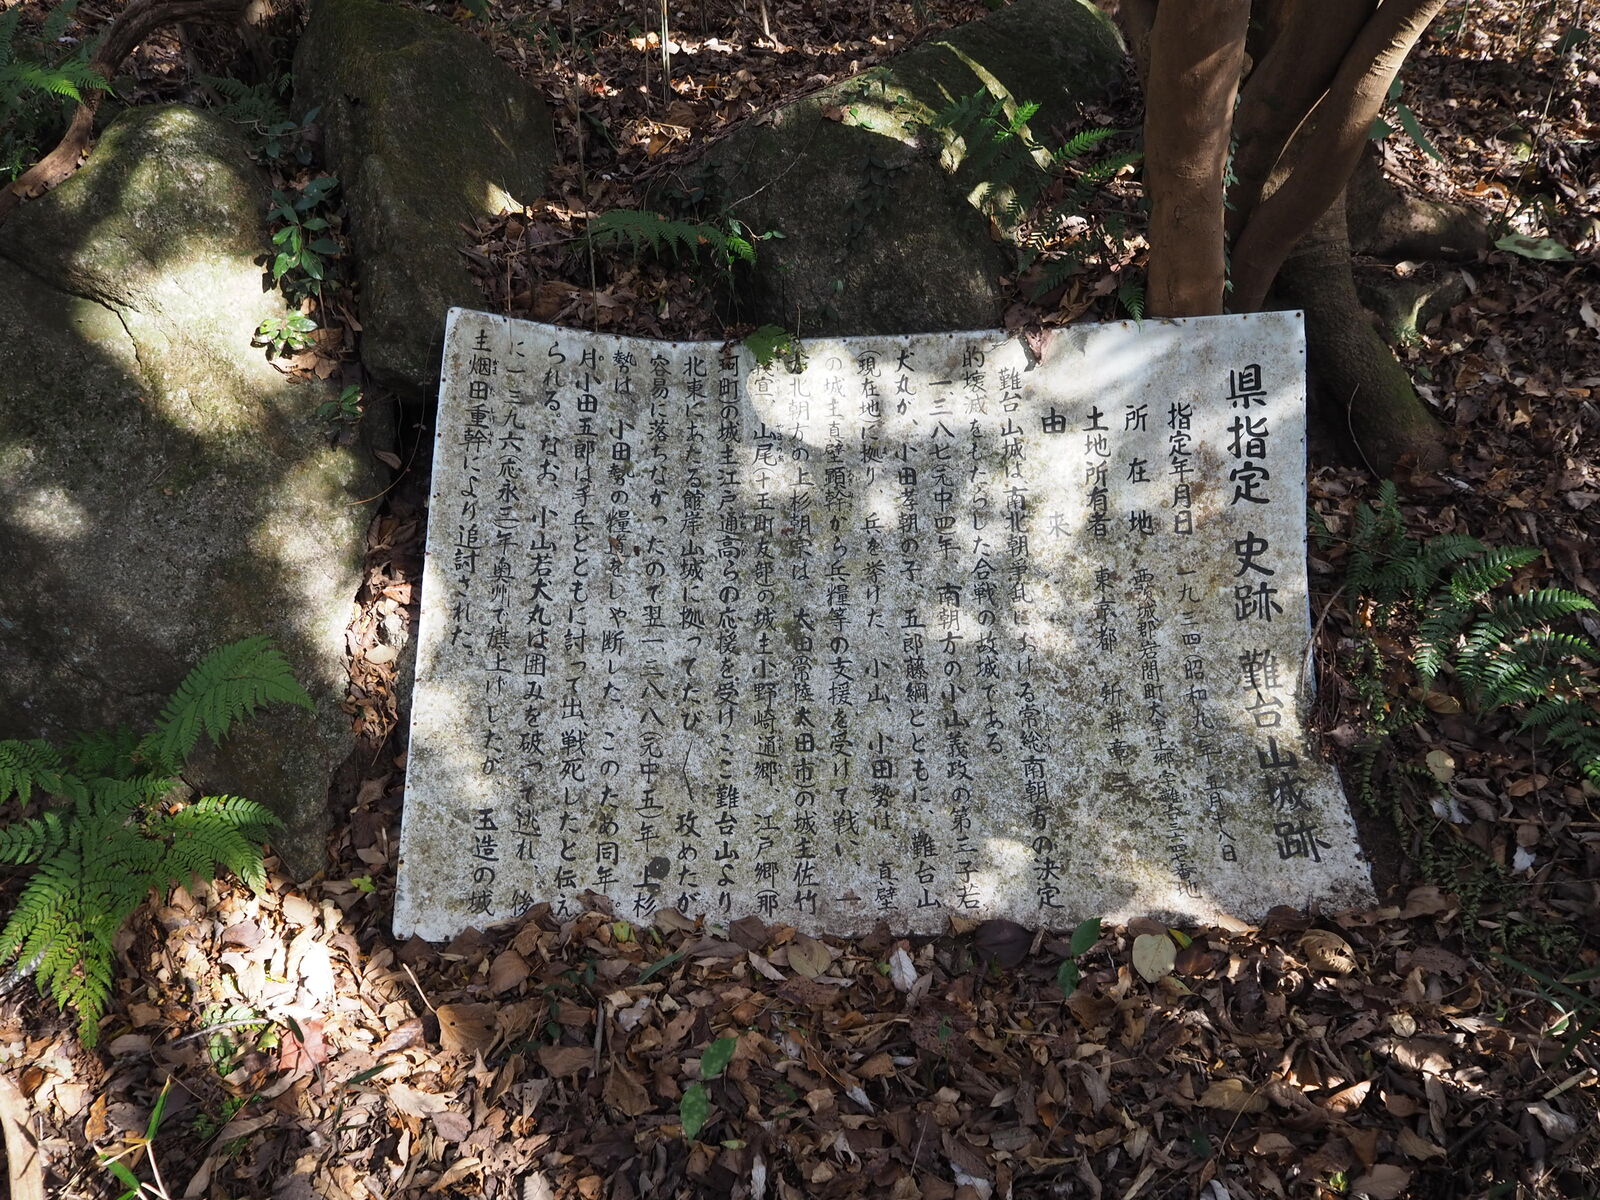 県指定 史跡 難台山城跡
指定年月日 一九三四(昭和九)年 五月十八日
所在地 西茨城郡岩間町大字上郷字難台三四七番地
土地所有者 東京都 新井
由来
難台山城は南北朝争乱における常総南朝方の決定
的壊滅をもたらした合戦の故城である。
一三八七元中四年 南朝方の小山義政の第三子若
犬丸が、小田孝朝の子、五郎藤綱とともに、難台山
(現在地)に拠り 兵を挙げた、小山、小田勢は、真壁
の城主真壁顕幹から兵糧等の支援を受けて戦い、一
方北朝方の上杉朝宗は、太田(常陸太田市)の城主佐竹
義宣、山尾(十王町友部)の城主小野崎通郷 江戸郷(那
珂町)の城主江戸通高らの応援を受けここ難台山より
北東にあたる館岸山城に拠ってたび〱攻めたが
容易に落ちなかったので翌一三八八(元中五)年 上杉
勢は、小田勢の糧道をしゃ断した、このため同年。
月小田五郎は手兵とともに討って出、戦死したと伝え
られる。なお、小山若犬丸は囲みを破って逃れ、後
に一三九六(応永三)年奥州で旗上げしたが 玉造の城
主烟田重幹により追討された。